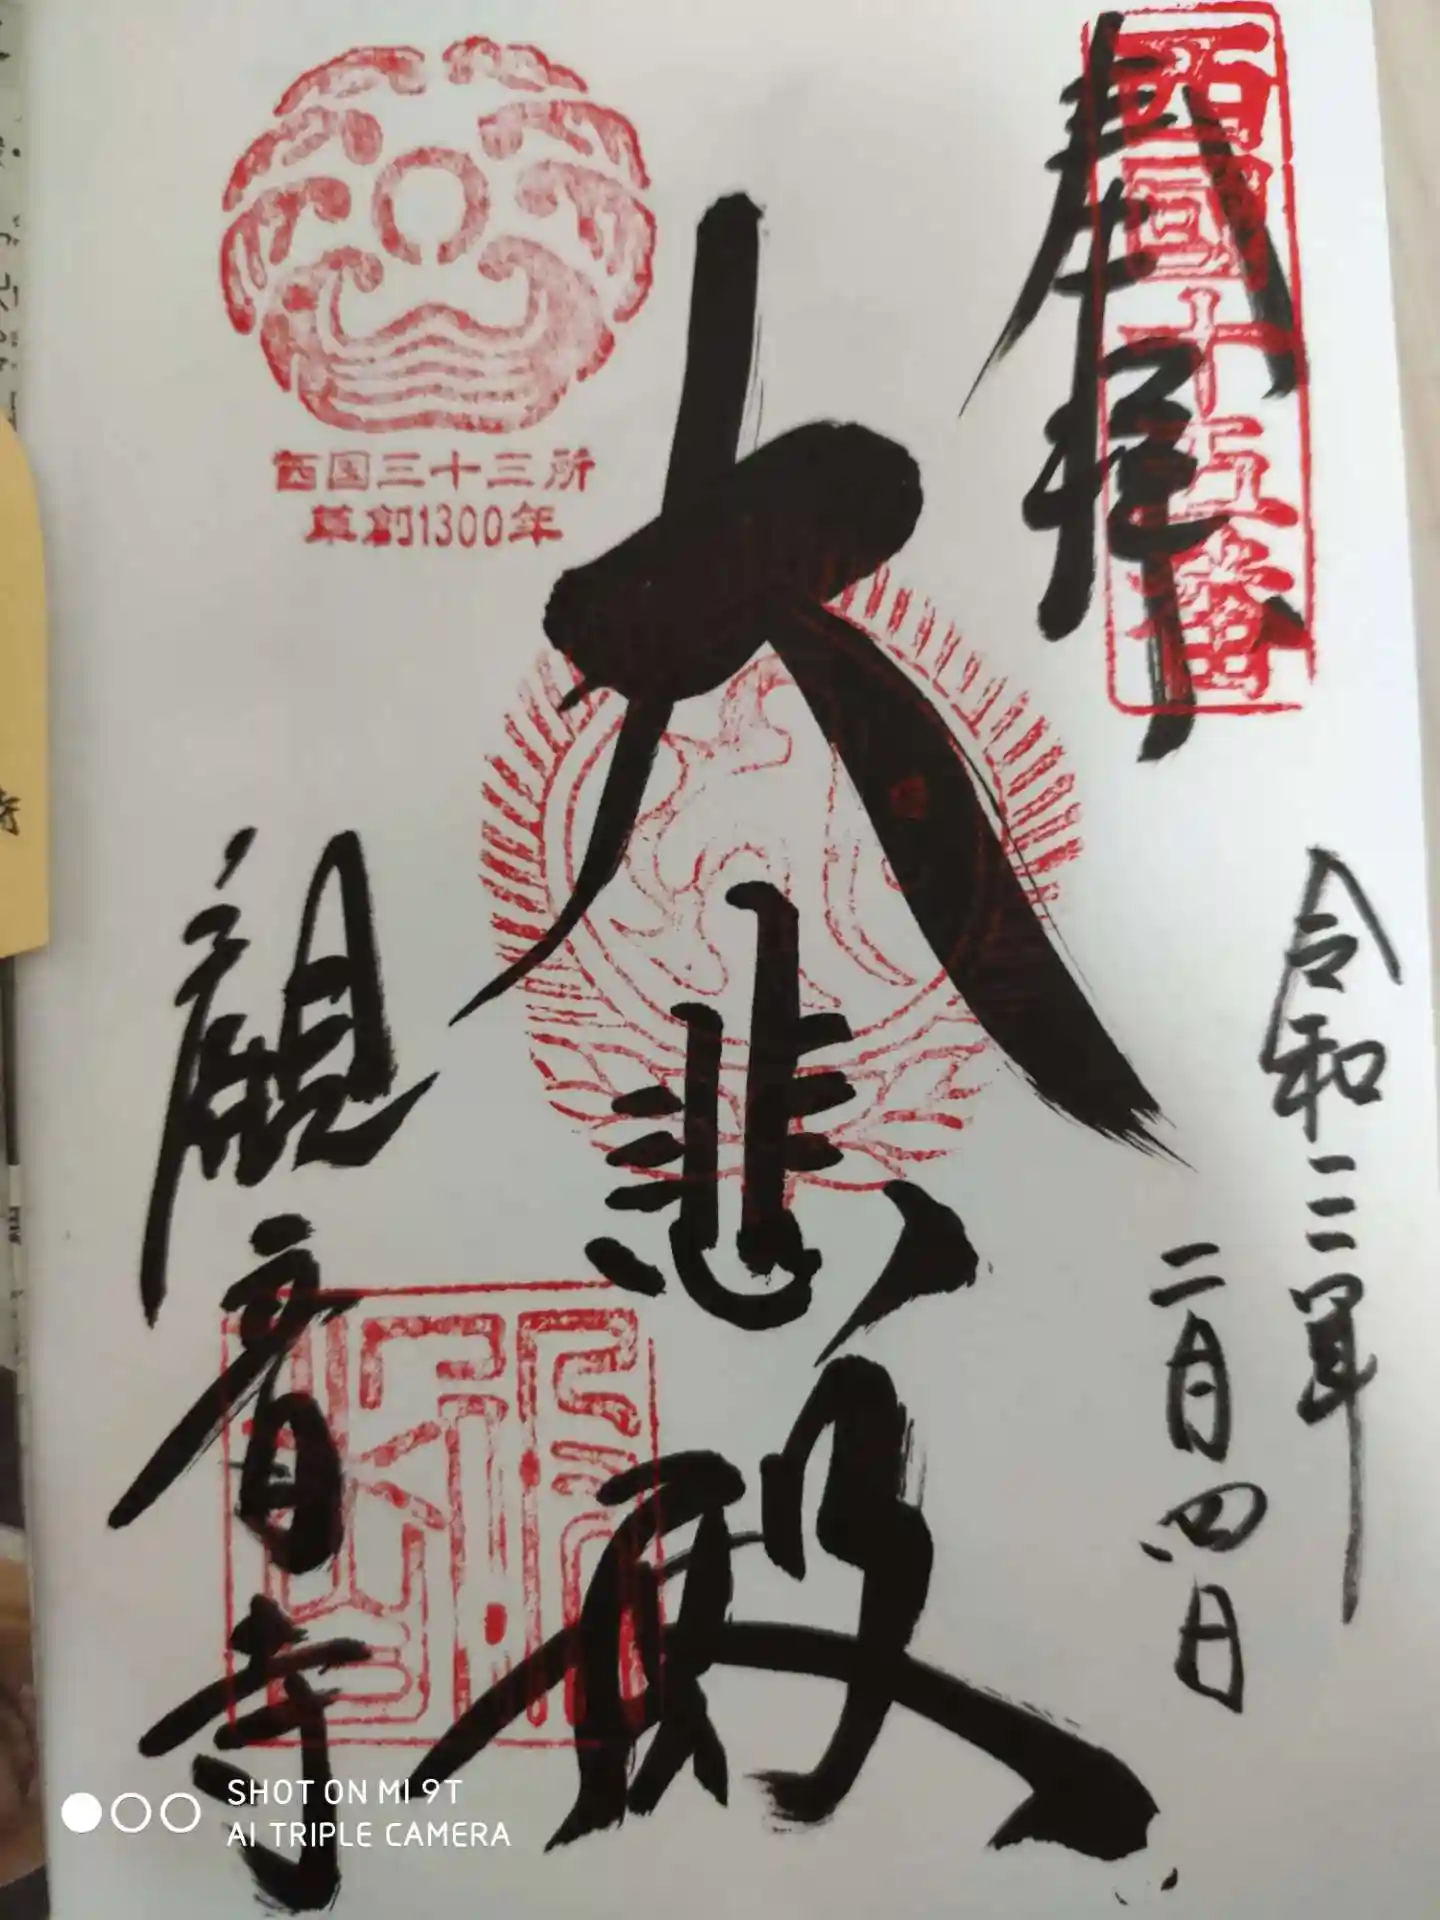 奉拝
西国十五番
令和二年
二月四日
大悲殿
西国三十三所
草創1300年
観音寺
SHOT ON MI 9T
AI TRIPLE CAMERA